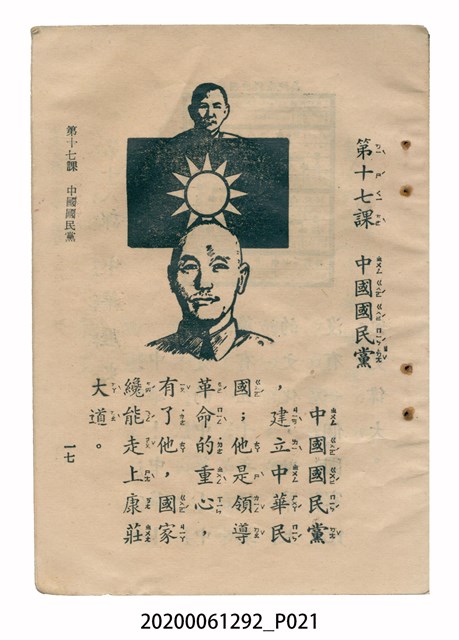 第十七課　中國國民黨
中國國民黨
，建立中華民
國；他是領導
革命的重心，
有了他，國家
纔能走上康莊
大道。
第十七課　中國國民黨
一七
20200061292_P021